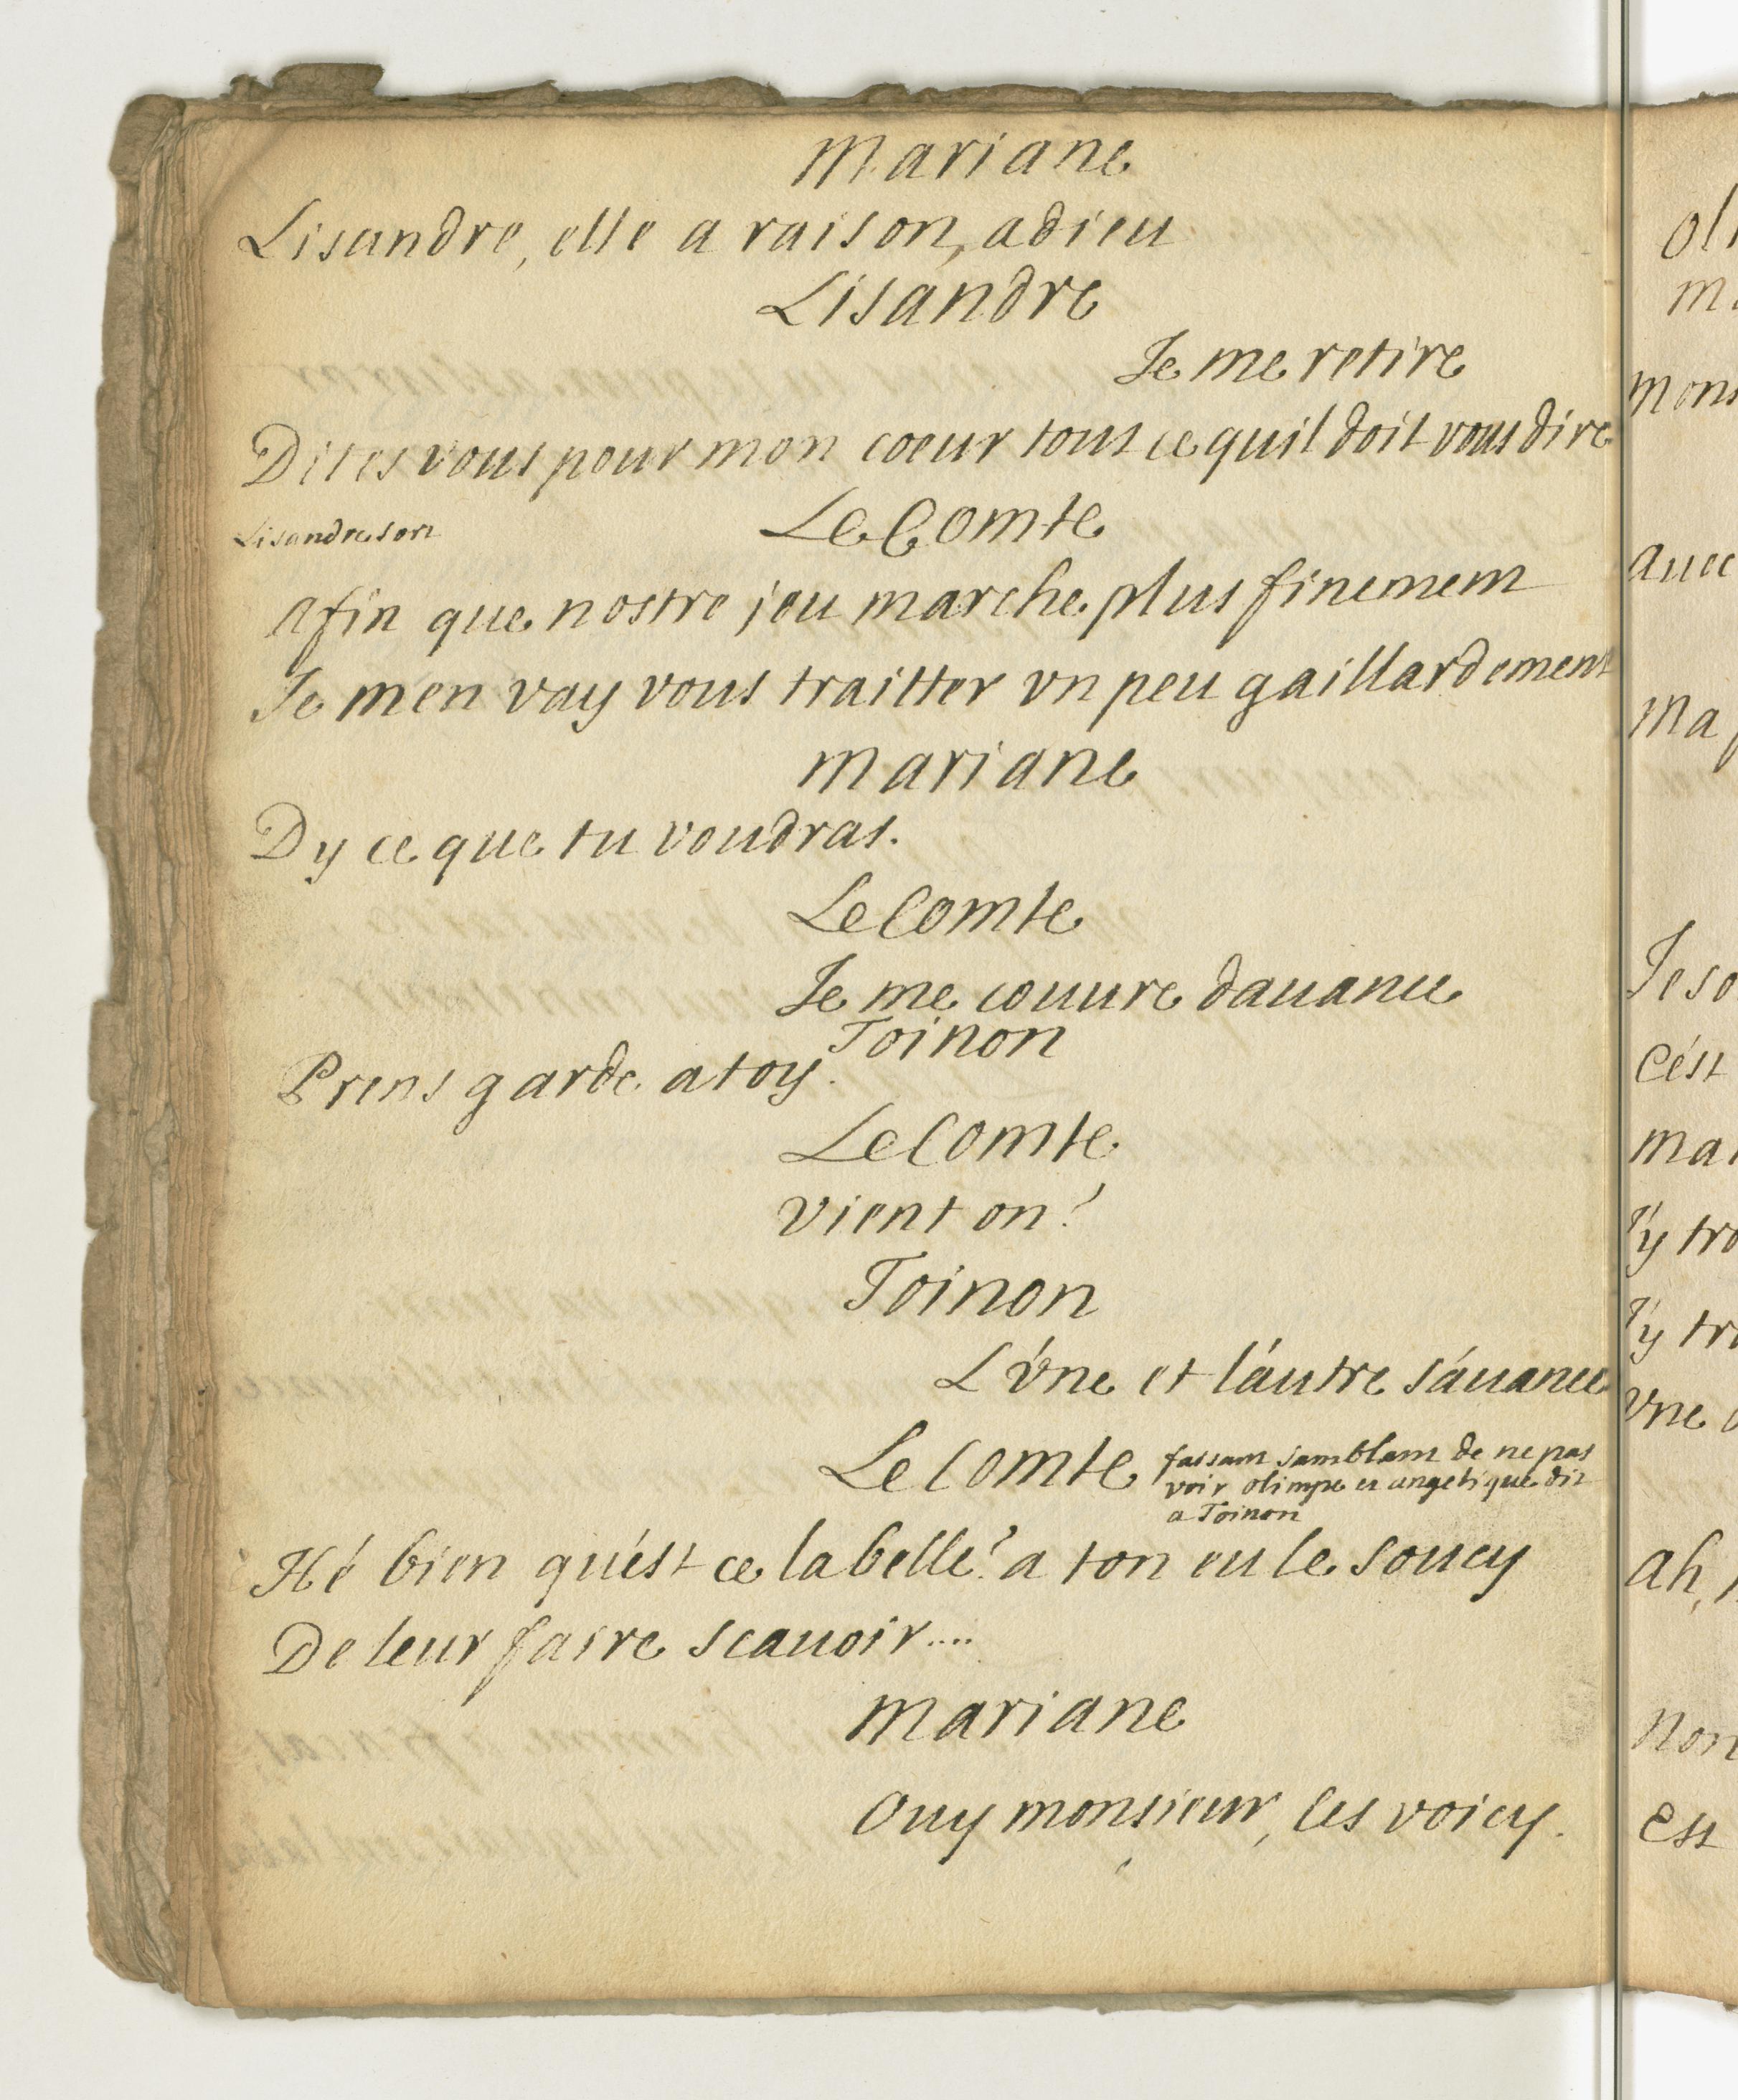 Mariane
Lisandre, elle a raison, adieu
Lisandre
Je me retire
Dites vous pour mon coeur tout ce quil doit vous dire
Le Comte
Lisandre sort
Afin que nostre jeu marche plus finement
Je men vay vous traitter vn peu gaillardement
Mariane
Dy ce que tu voudras.
Le Comte
Je me couure dauance
Toinon
Prens garde a toy.
Le Comte
vient on?
Toinon
L'vne et l'autre s'auance
Le Comte
faisant samblant de ne pas
voir olimpe et angelique dit
a Toinon
Hé bien qu'est ce la belle? a ton eu le soucy
De leur faire scauoir....
Mariane
Ouy monsieur, les voicy.
mons
auec
ma
Je so
C'est
mai
J'y tro
J'y tr
vne
ah,
non
est